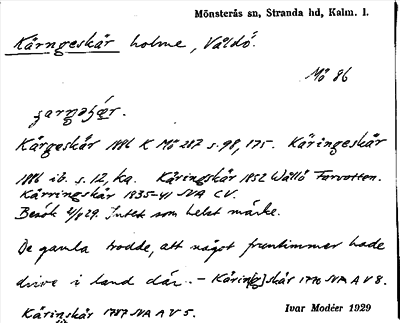 Mönsterås sn, Stranda hd, Kalm. l.
Kärngeskär holme, Våldö.
Mö 86
Kärgeskär 1886 K Mö 287 s. 98, 175. Käringeskär
1886 ib. s. 12, ka. Käringskär 1852 Wållö
Kärringskär 1835-41 SNA CV.
Besök 2/8 29. Intet som helst märke.
De gamla trodde, att något fruntimmer hade
drive i land där. – Käring[e]skär 1776 SNA A V 8.
Käringskär 1787 SNA A V 5.
Ivar Modéer 1929